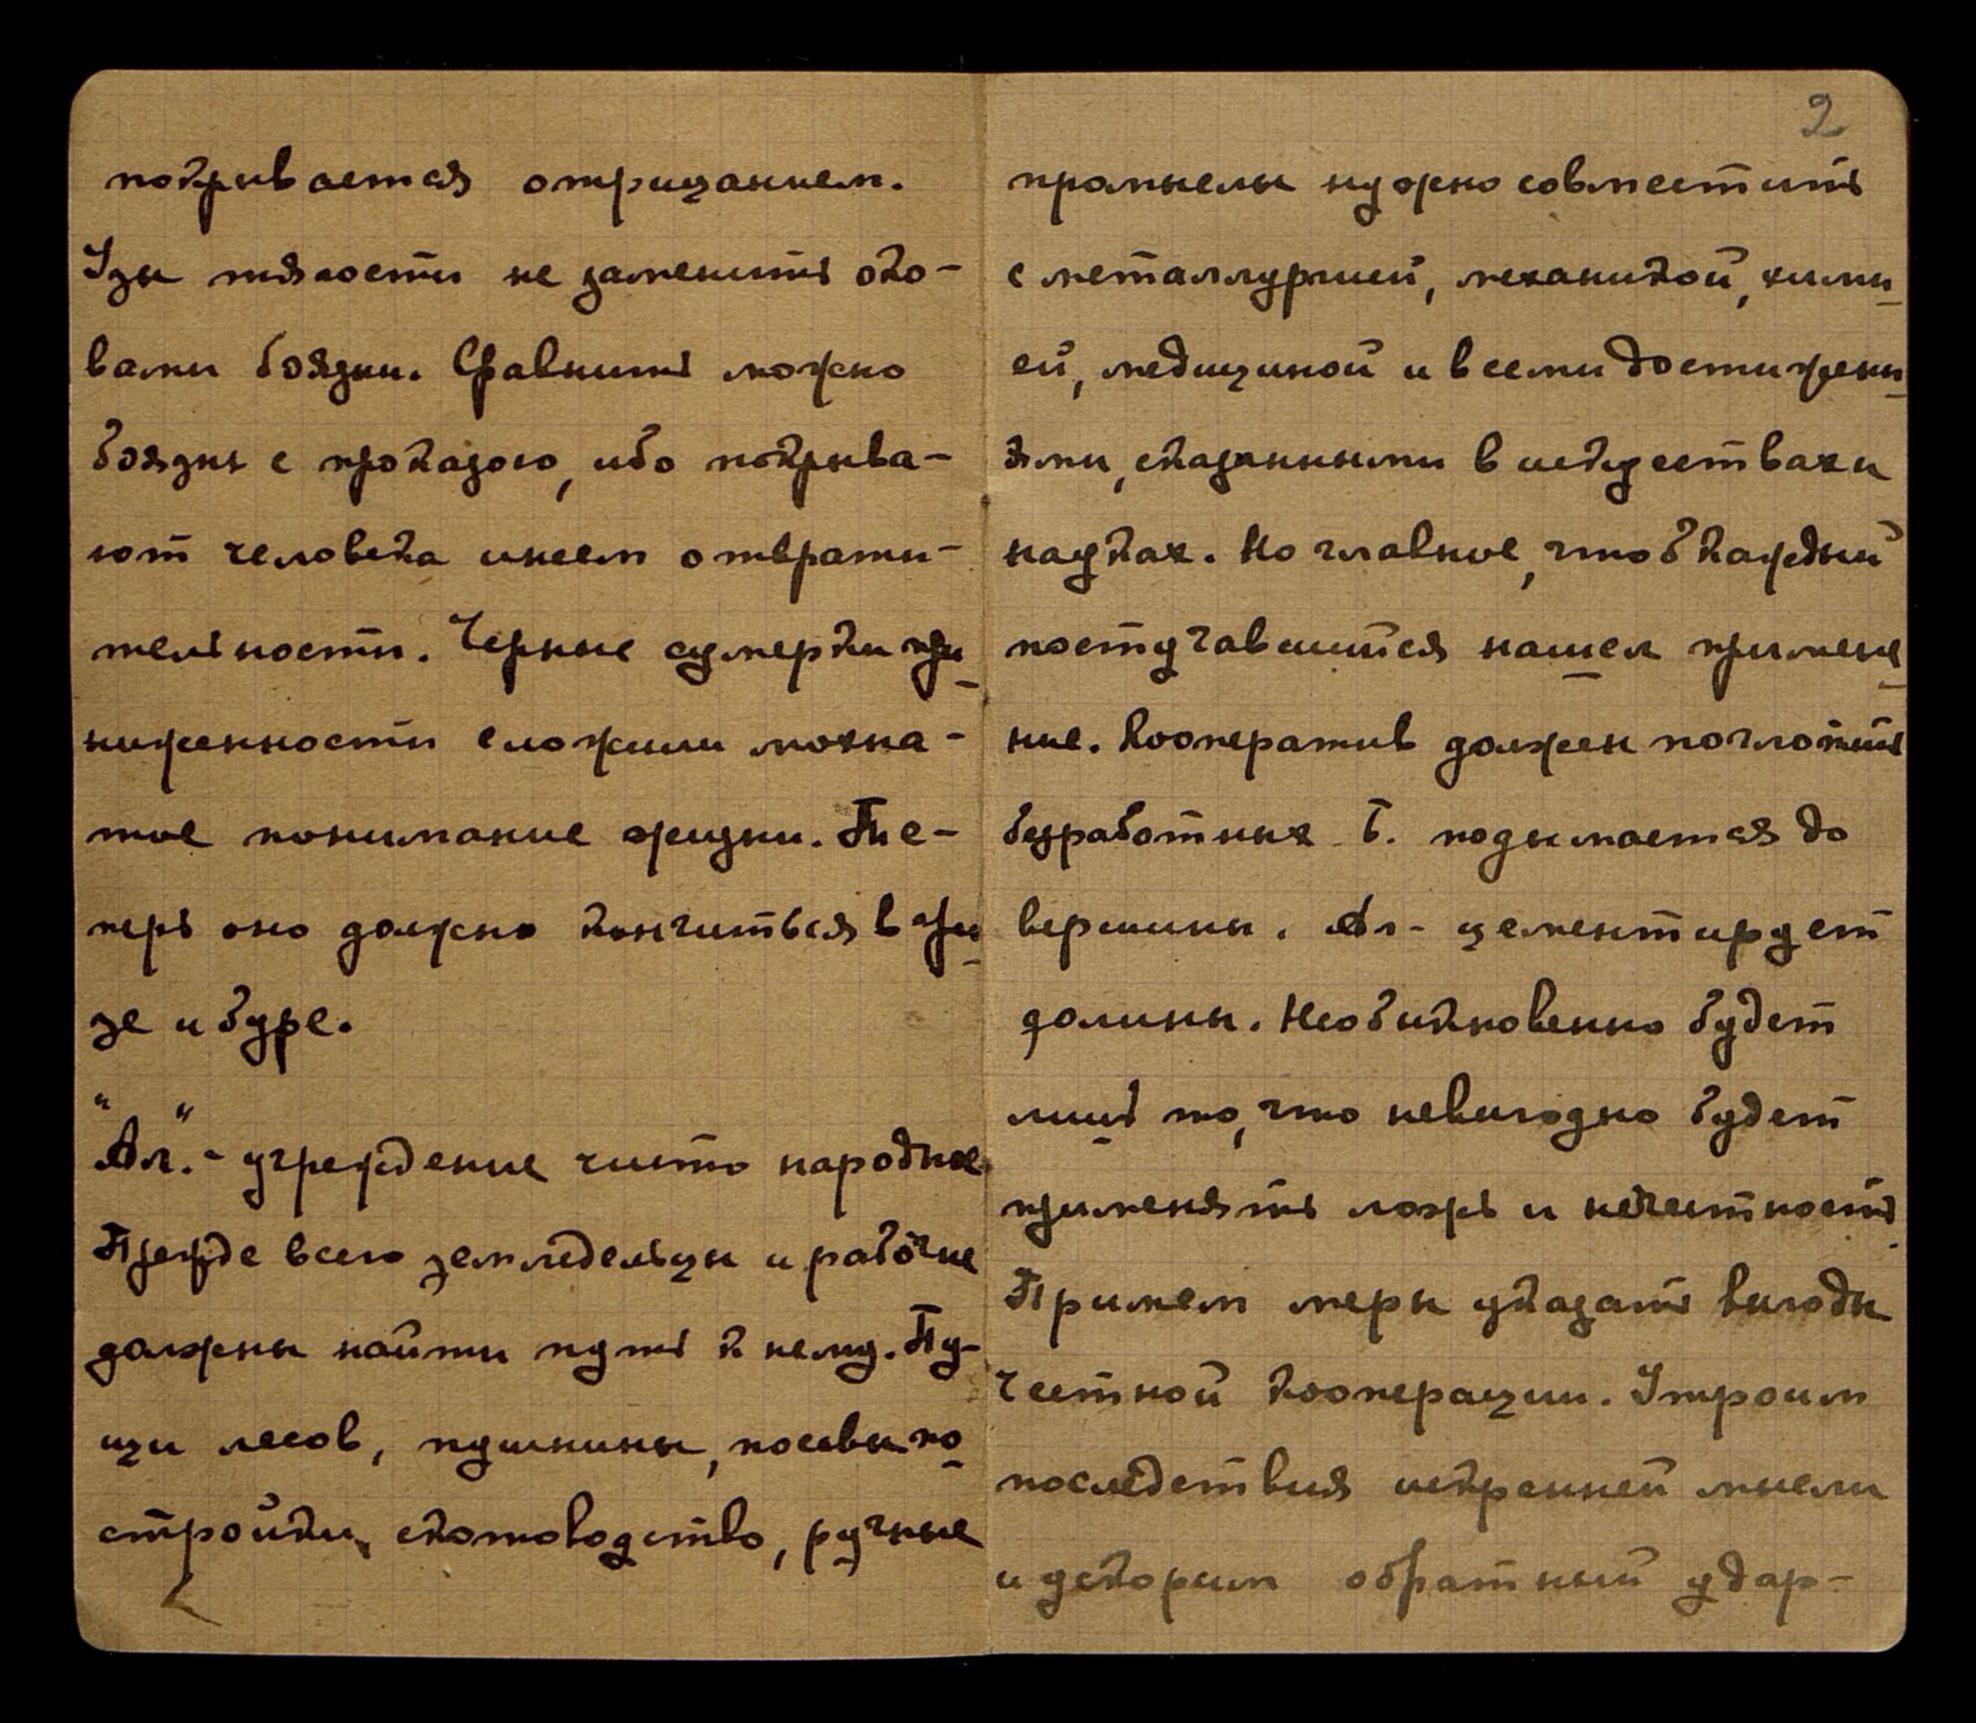 покрывается отрицанием.
Узы тягости не заменить око-
вами боязни. Сравнить можно
боязнь с проказою, ибо покрыва-
ют человека инеем отврати-
тельности. Черные сумерки при
ниженности сложили мохна-
тое понимание жизни. Те-
перь оно должно кончиться в гро
зе и буре.
"Ал." - учреждение чисто народное
Прежде всего земледельцы и рабочие
должны найти путь к нему. Пу-
щи лесов, пушнины, посевы по
стройки, скотоводство, ручные
2
промыслы нужно совместить
с металлургией, механикой, хими
ей, медициной и всеми достижени
ями, сказанными в искусствах и
науках. Но главное, чтоб каждый
постучавшийся нашел примене
ние. Кооператив должен поглотить
безработных Б. подымается до
вершины. Ал- цементирует
долины. Необыкновенно будет
лишь то, что невыгодно будет
применять ложь и нечестность.
Примем меры указать выгоды
честной кооперации. Утроим
последствия искренней мысли
и ускорим обратный удар-